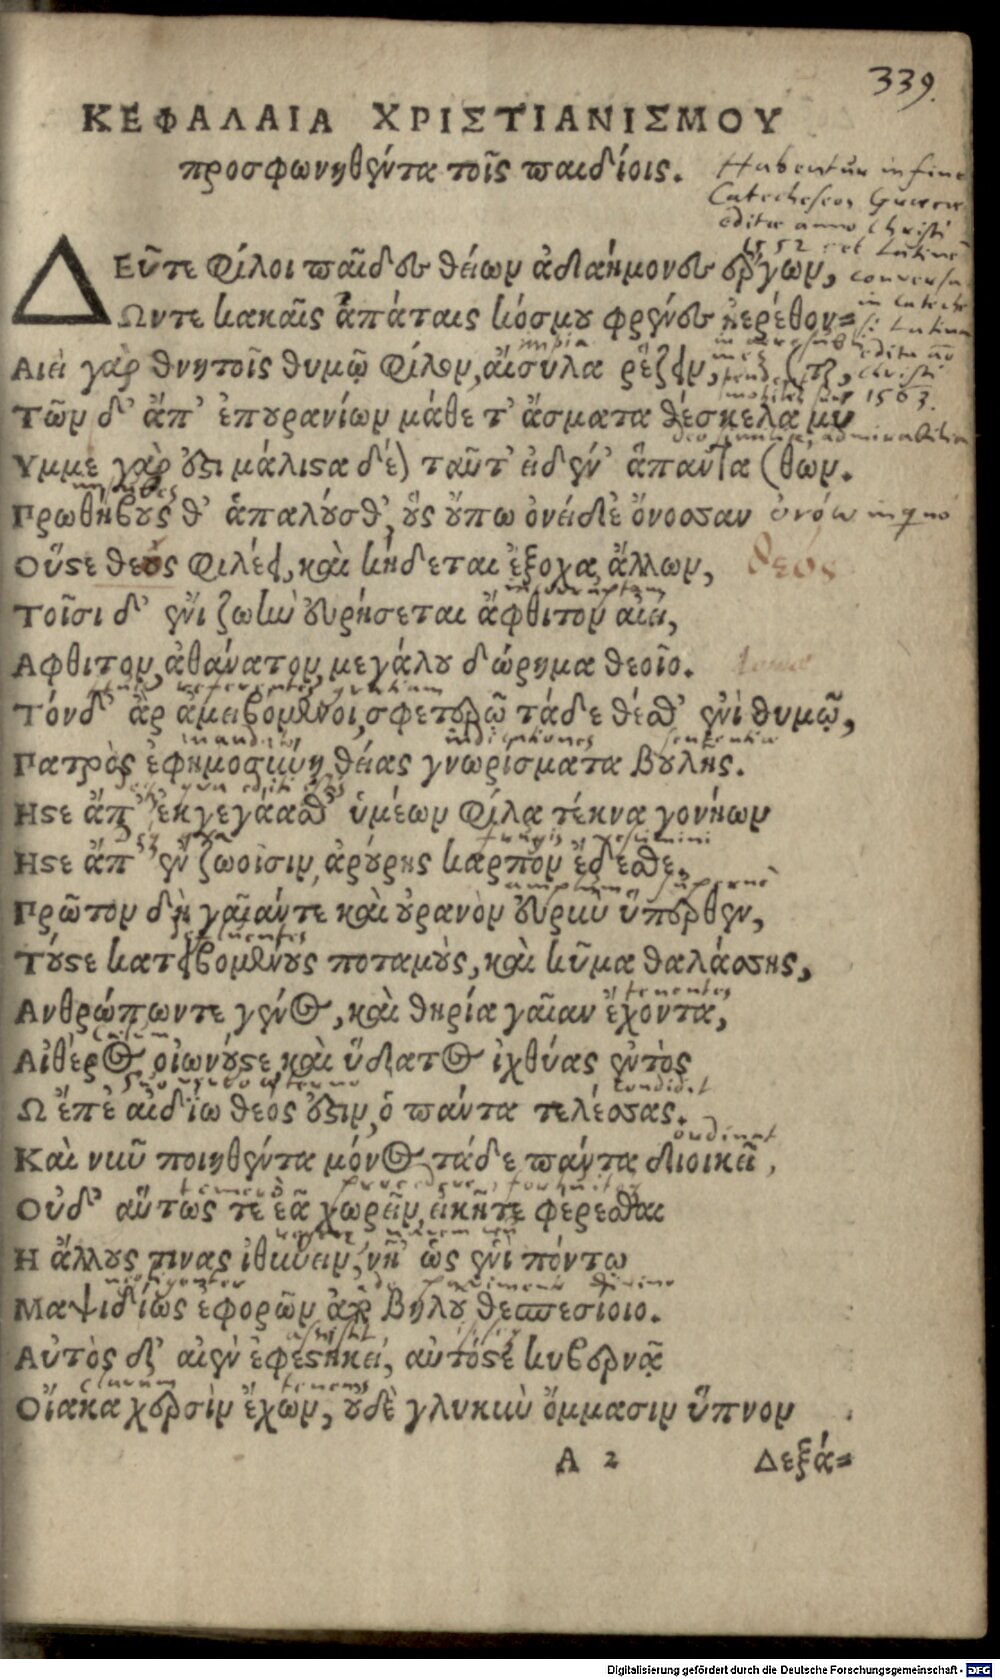 339.
ΚΕΦΑΛΑΙΑ ΧΡΙΣΤΙΑΝΙΣΜΟΥ
προσφωνηθέντα τοῖς παιδίοις.
Habentur in fine
Catecheseos Graecae
editae anno Christi
1552 et Latine
conversa
in Cateche
si Latina
edita
Christi
1563.
ΔΕῦτε φίλοι παῖδες θείων ἀδιαήμονες ἔργων,
Ωντε κακαῖς ἀπάταις κόσμου φρένες ἠερέθον=
Αιεὶ γὰρ θνητοῖς θυμῷ φίλον, αἴσυλα ῥέζειν, (ται,
Τῶν δ' ἄπ' ἐπουρανίων μάθετ' ἄσματα θέσκελα μυ
Υμμε γὰρ ἔστι μάλιστα δέον ταῦτ' εἰδέν' ἅπαντα (θων.
Πρωθήβους θ' ἁπαλούσθ', οὓς οὔπω ὀνείδιε ὄνοσσαν
Οὕστε θεὸς φιλέει, καὶ κήδεται ἔξοχα ἄλλων,
θεός
Τοῖσι δ' ἔνι ζωὴν εὑρήσεται ἄφθιτον αἰεὶ,
Αφθιτον, ἀθάνατον, μεγάλου δώρημα θεοῖο.
Τόνδ' ἂρ ἀμειβόμενοι, σφετέρῳ τάδε θέσθ' ἐνὶ θυμῷ,
Πατρὸς ἐφημοσύνῃ θείας γνωρίσματα βουλῆς.
Ηστε ἄπ' ἐκγεγάασθ' ὑμέων φίλα τέκνα γονήων
Ηστε ἄπ' ἐν ζωοῖσιν, ἀρούρης καρπὸν ἔδεσθε.
Πρῶτον δὴ γαῖάντε καὶ οὐρανὸν εὐρὺν ὕπερθεν,
Τούστε κατειβομένους ποταμοὺς, καὶ κῦμα θαλάσσης,
Ανθρώπωντε γένος, καὶ θηρία γαῖαν ἔχοντα,
tenentes
Αἰθέρος οἰωνούστε, καὶ ὕδατος ἰχθύας ἐντὸς
condidit
Ω ἔπε ἀϊδίω θεος ἔστιν, ὁ πάντα τελέσσας.
ordinat
Καὶ νῦν ποιηθέντα μόνος τάδε πάντα διοικεῖ,
Οὐδ' αὔτως τε ἐᾷ χωρεῖν, εἰκῆτε φέρεσθαι
Η ἄλλους τινας ἰθύνειν, νῆ' ὡς ἐνὶ πόντῳ
negligenter
Μαψιδίως ἐφορῶν ἀπὸ βηλοῦ θεσπεσίοιο.
Αὐτὸς δ' αἰὲν ἐφέστηκεν, αὐτόστε κυβερνᾷ
clavum tenens
Οἴακα χερσὶν ἔχων, οὐδὲ γλυκὺν ὄμμασιν ὕπνον
A 2 Δεξά=
Digitalisierung gefördert durch die Deutsche Forschungsgemeinschaft - DFG